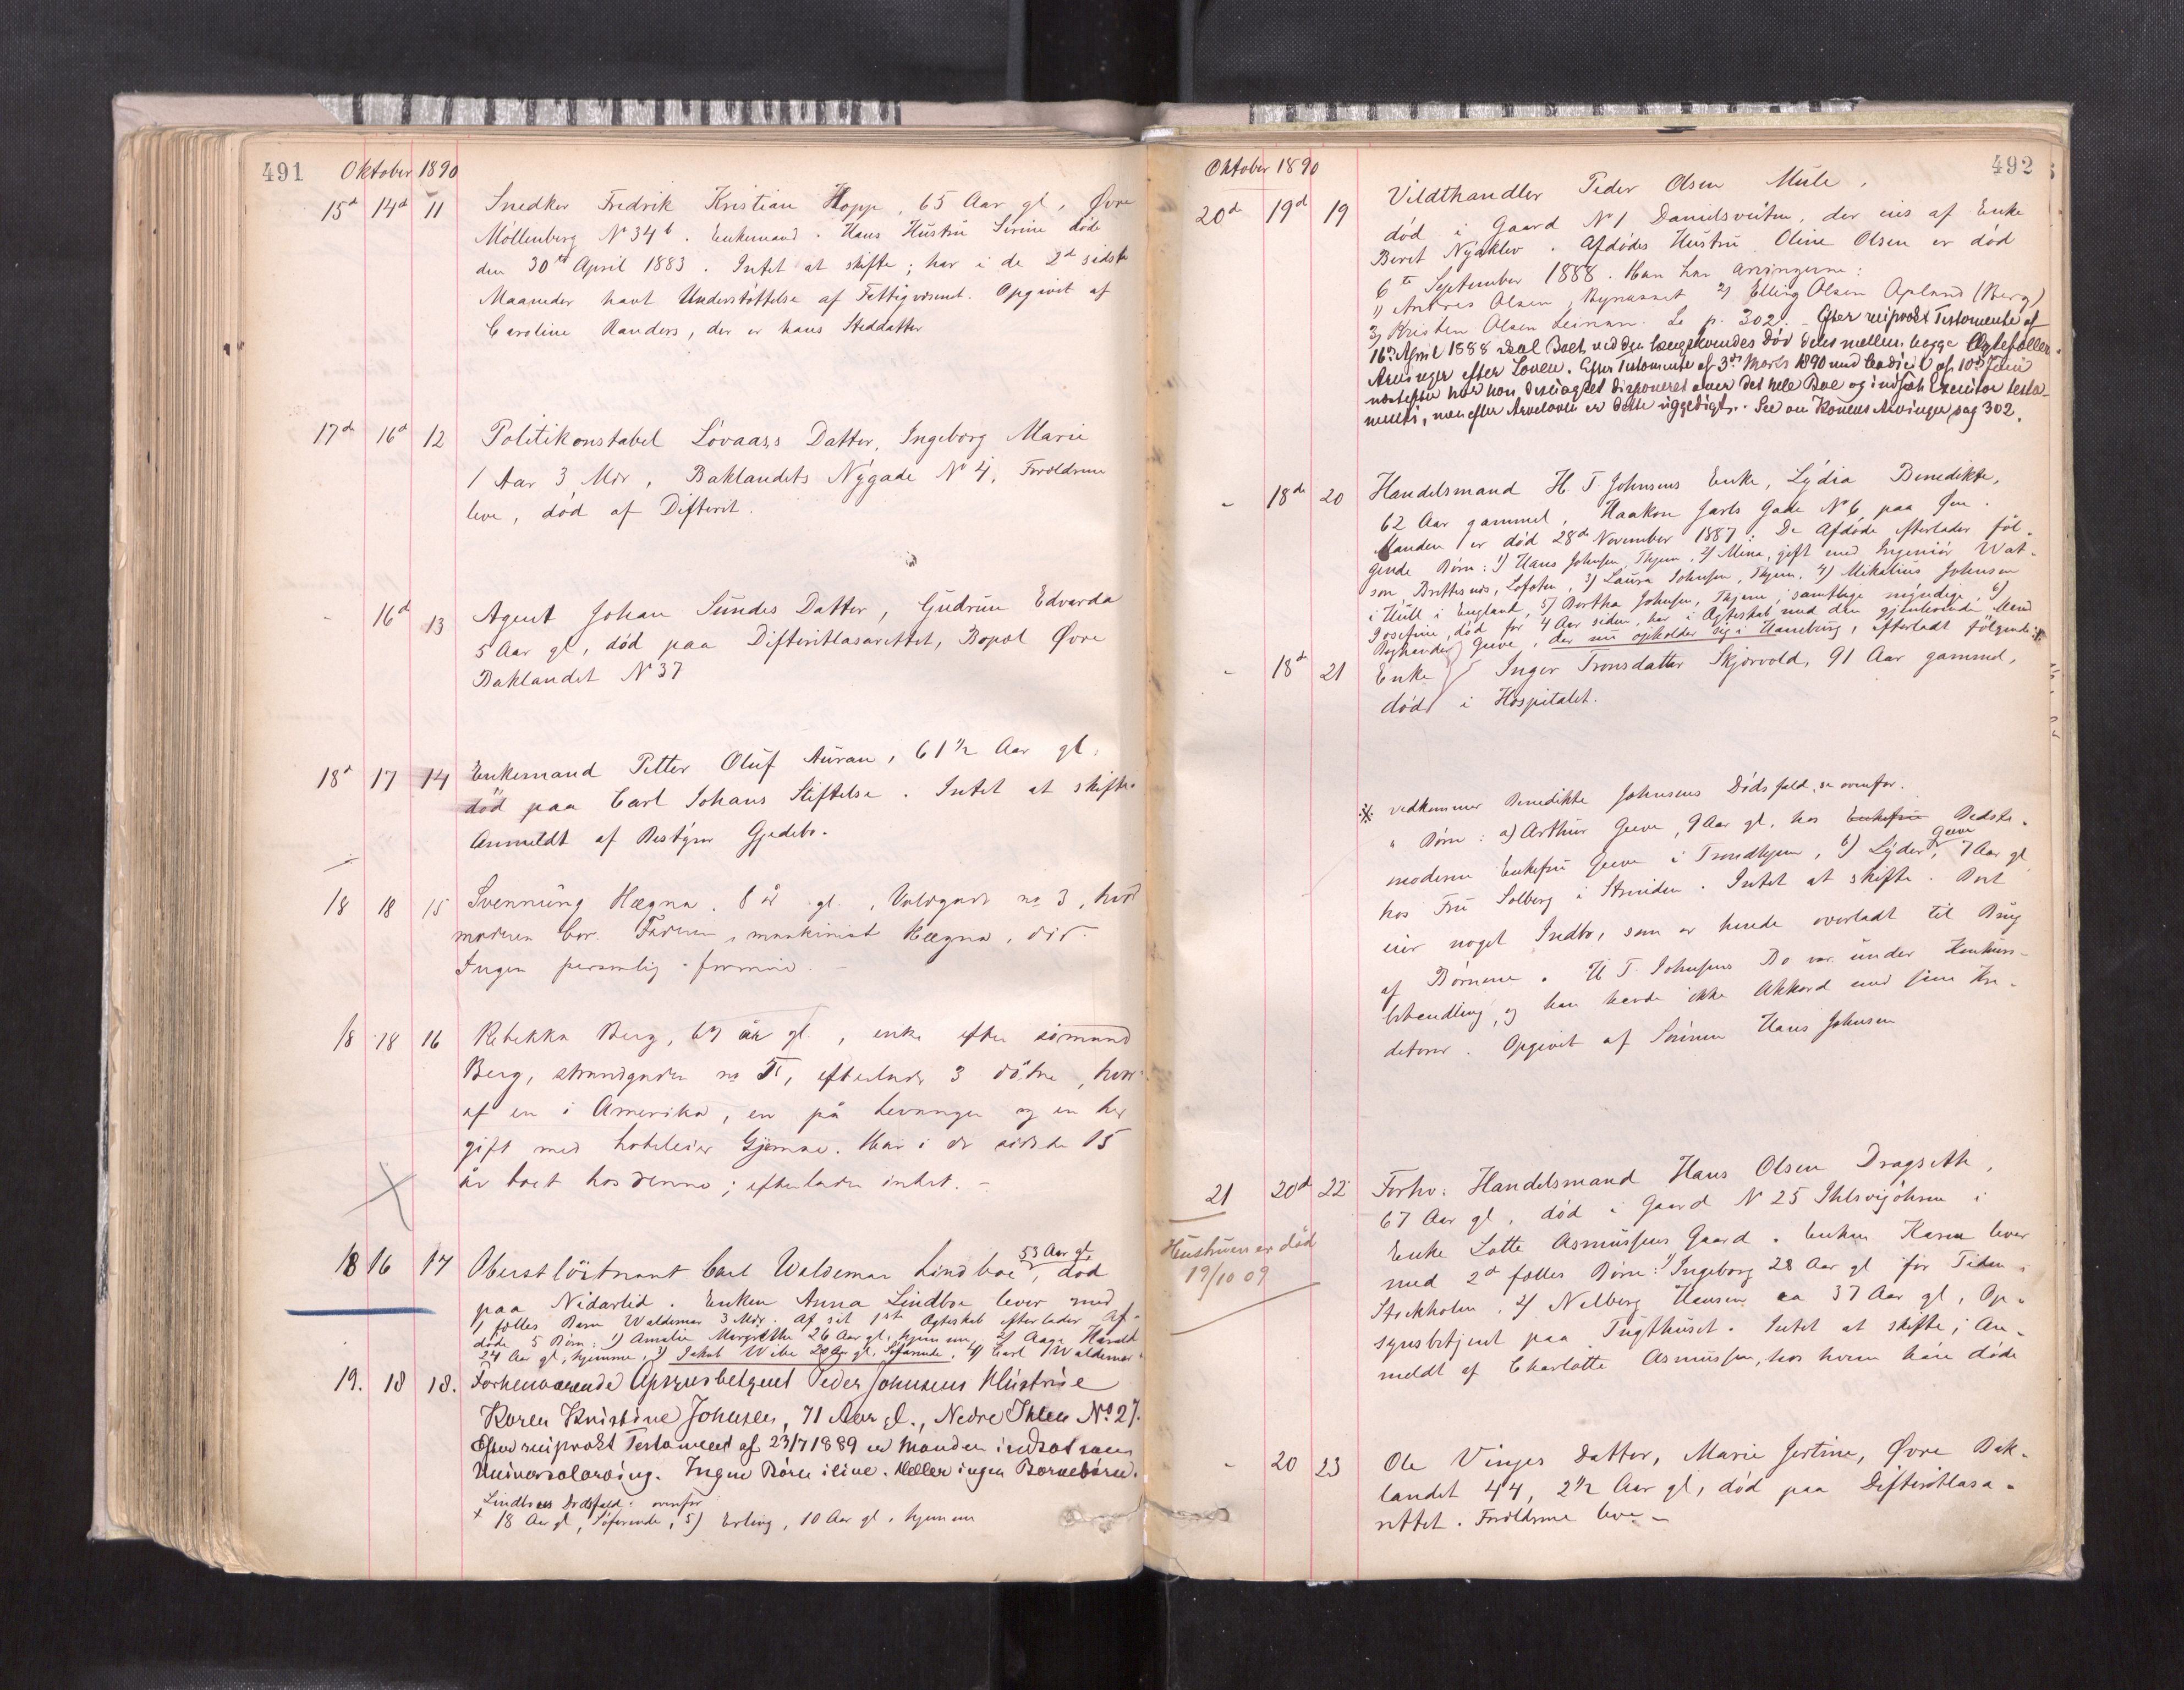 491 Oktober 1890
15d 14d 11 Snedker Fredrik Kristian Hopp, 65 Aar gl, Øvre
Möllenberg No 34b. Enkemand. Hans Hustru Sirine döde
den 30te April 1883. Intet at skifte; har i de 2de sidste
Maaneder havt Understöttelse af Fattigvæsenet. Opgivet af
Caroline Randers, der er hans Steddatter
17de 16d 12 Politikonstabel Lövaas's Datter, Ingeborg Marie
1 Aar 3 Mdr, Baklandets Nygade No 4, Forældrene
leve, död af Difterit.
- 16d 13 Agent Johan Sundes Datter, Gudrun Edvarda
5 Aar gl, död paa Difteritlasarettet, Bopæl Øvre
Baklandet No 37
18d 17 14 Enkemand Petter Oluf Auran, 61 1/2 Aar gl,
död paa Carl Johans Stiftelse. Intet at skifte.
Anmeldt af Bestyrer Gjedebo.
18 18 15 Svennung Hægna. 8 år gl., Voldgade no 3, hvor
moderen bor. Faderen, maskinist Hægna, död.
Ingen personlig formue. -
18 18 16 Rebekka Berg, 67 år gl., enke efter sömand
Berg, strandgaden no, efterlader 3 dötre, hvor-
af en i Amerika, en på Levanger og en her
gift med hoteleier Gjemse. Har i de sidste 15
år boet hos denne; efterlader intet. -
18 16 17 Oberstlöitnant Carl Waldemar Lindboe, 53 Aar gl, död
paa Nidarlid. Enken Anna Lindboe lever med
1 fælles Barn Waldemar 3 Mdr. Af sit 1ste Ægteskab efterlader Af-
döde 5 Börn: 1) Amalie Margrethe 26 Aar gl, hjemme, 2) Aage Harald
24 Aar gl, hjemme, 3) Jakob Wibe 20 Aar gl, Söfarende, 4) Carl Waldemar
19. 18 18. Forhenværende Opsynsbetjent Peder Johnsens Hustrue
Karen Kristine Johnsen, 71 Aar gl., Nedre Ihlen No 27.
Efter reciprokt Testament af 23/7 1889 er Manden indsat som
Universalarving. Ingen Börn ilive. Heller ingen Børnebørn.
Lindboes Dödsfald: ovenfor
+ 18 Aar gl, Söfarende, 5) Erling, 10 Aar gl, hjemme
Oktober 1890 492
20d 19d 19 Vildthandler Peder Olsen Mule,
död i Gaard No 1 Danielsveiten, der eies af Enke
Beret Nyaklev. Afdödes Hustru Oline Olsen er död
6te September 1888. Han har Arvingerne:
1) Andreas Olsen, Bynæsset 2) Elling Olsen Oplund (Berg)
3) Kristen Olsen Leinan. Se p. 302. - Efter reciprokt Testamente af
16de April 1888 skal Boet ved den længstlevendes död deles mellem begge Ægtefæller
Arvinger efter Loven. Efter Testamente af 3de Marts 1890 med Codicil af 10de Juni
næstefter har han desuagtet disponeret over det hele Boe og indsat Executor testa-
menti, men efter Arveloven er dette ugyldigt. See om Konens Arvinger pag 302.
- 18de 20 Handelsmand H. T. Johnsens Enke, Lydia Benedikte,
62 Aar gammel, Haakon Jarls Gade No 6 paa Øen.
Manden er död 28de November 1887. De Afdöde efterlader föl-
gende Börn: 1) Hans Johnsen, Thjem, 2) Mina, gift med Ingeniör Wat-
son, Brettesnes, Lofoten, 3) Laura Johnsen, Thjem, 4) Mikalius Johnsen
i Hull i England, 5) Bertha Johnsen, Thjem, samtlige myndige, 6)
Josefine, död for 4 Aar siden, har i Ægteskab med den gjenlevende Mand
Boghandler Greve, der nu opholder sig i Hamburg, efterladt fölgende ·/·
- 18d 21 Enke Inger Tronsdatter Skjörvold, 91 Aar gammel,
död i Hospitalet.
·/· vedkommer Benedikte Johnsens Dödsfald, se ovenfor.
" Börn: a) Arthur Greve, 9 Aar gl, hos Enkefru Bedste-
moderen Enkefru Greve i Trondhjem, b) Lyder Greve, 7 Aar gl
hos Fru Solberg i Strinden. Intet at skifte. Boet
eier noget Indbo, som er hende overladt til Brug
af Börnene. H T. Johnsens Bo var under Konkurs-
behandling, og han havde ikke Akkord med sine Kre-
ditorer. Opgivet af Sönnen Hans Johnsen
21 20d 22 Forhv. Handelsmand Hans Olsen Dragseth,
67 Aar gl, död i Gaard No 25 Ihlsvigören i
Enke Lotte Asmussens Gaard. Enken Karen lever
med 2de fælles Börn: 1) Ingeborg 28 Aar gl for Tiden i
Stockholm, 2) Nelberg Hansen ca 37 Aar gl, Op-
synsbetjent paa Tugthuset. Intet at skifte; An-
meldt af Charlotte Asmussen, hos hvem han döde
Hustruen er död
19/10 09
- 20 23 Ole Vinjes Datter, Marie Jertine, Øvre Bak-
landet 44, 2 1/2 Aar gl, död paa Difteritlasa-
rettet. Forældrene leve -